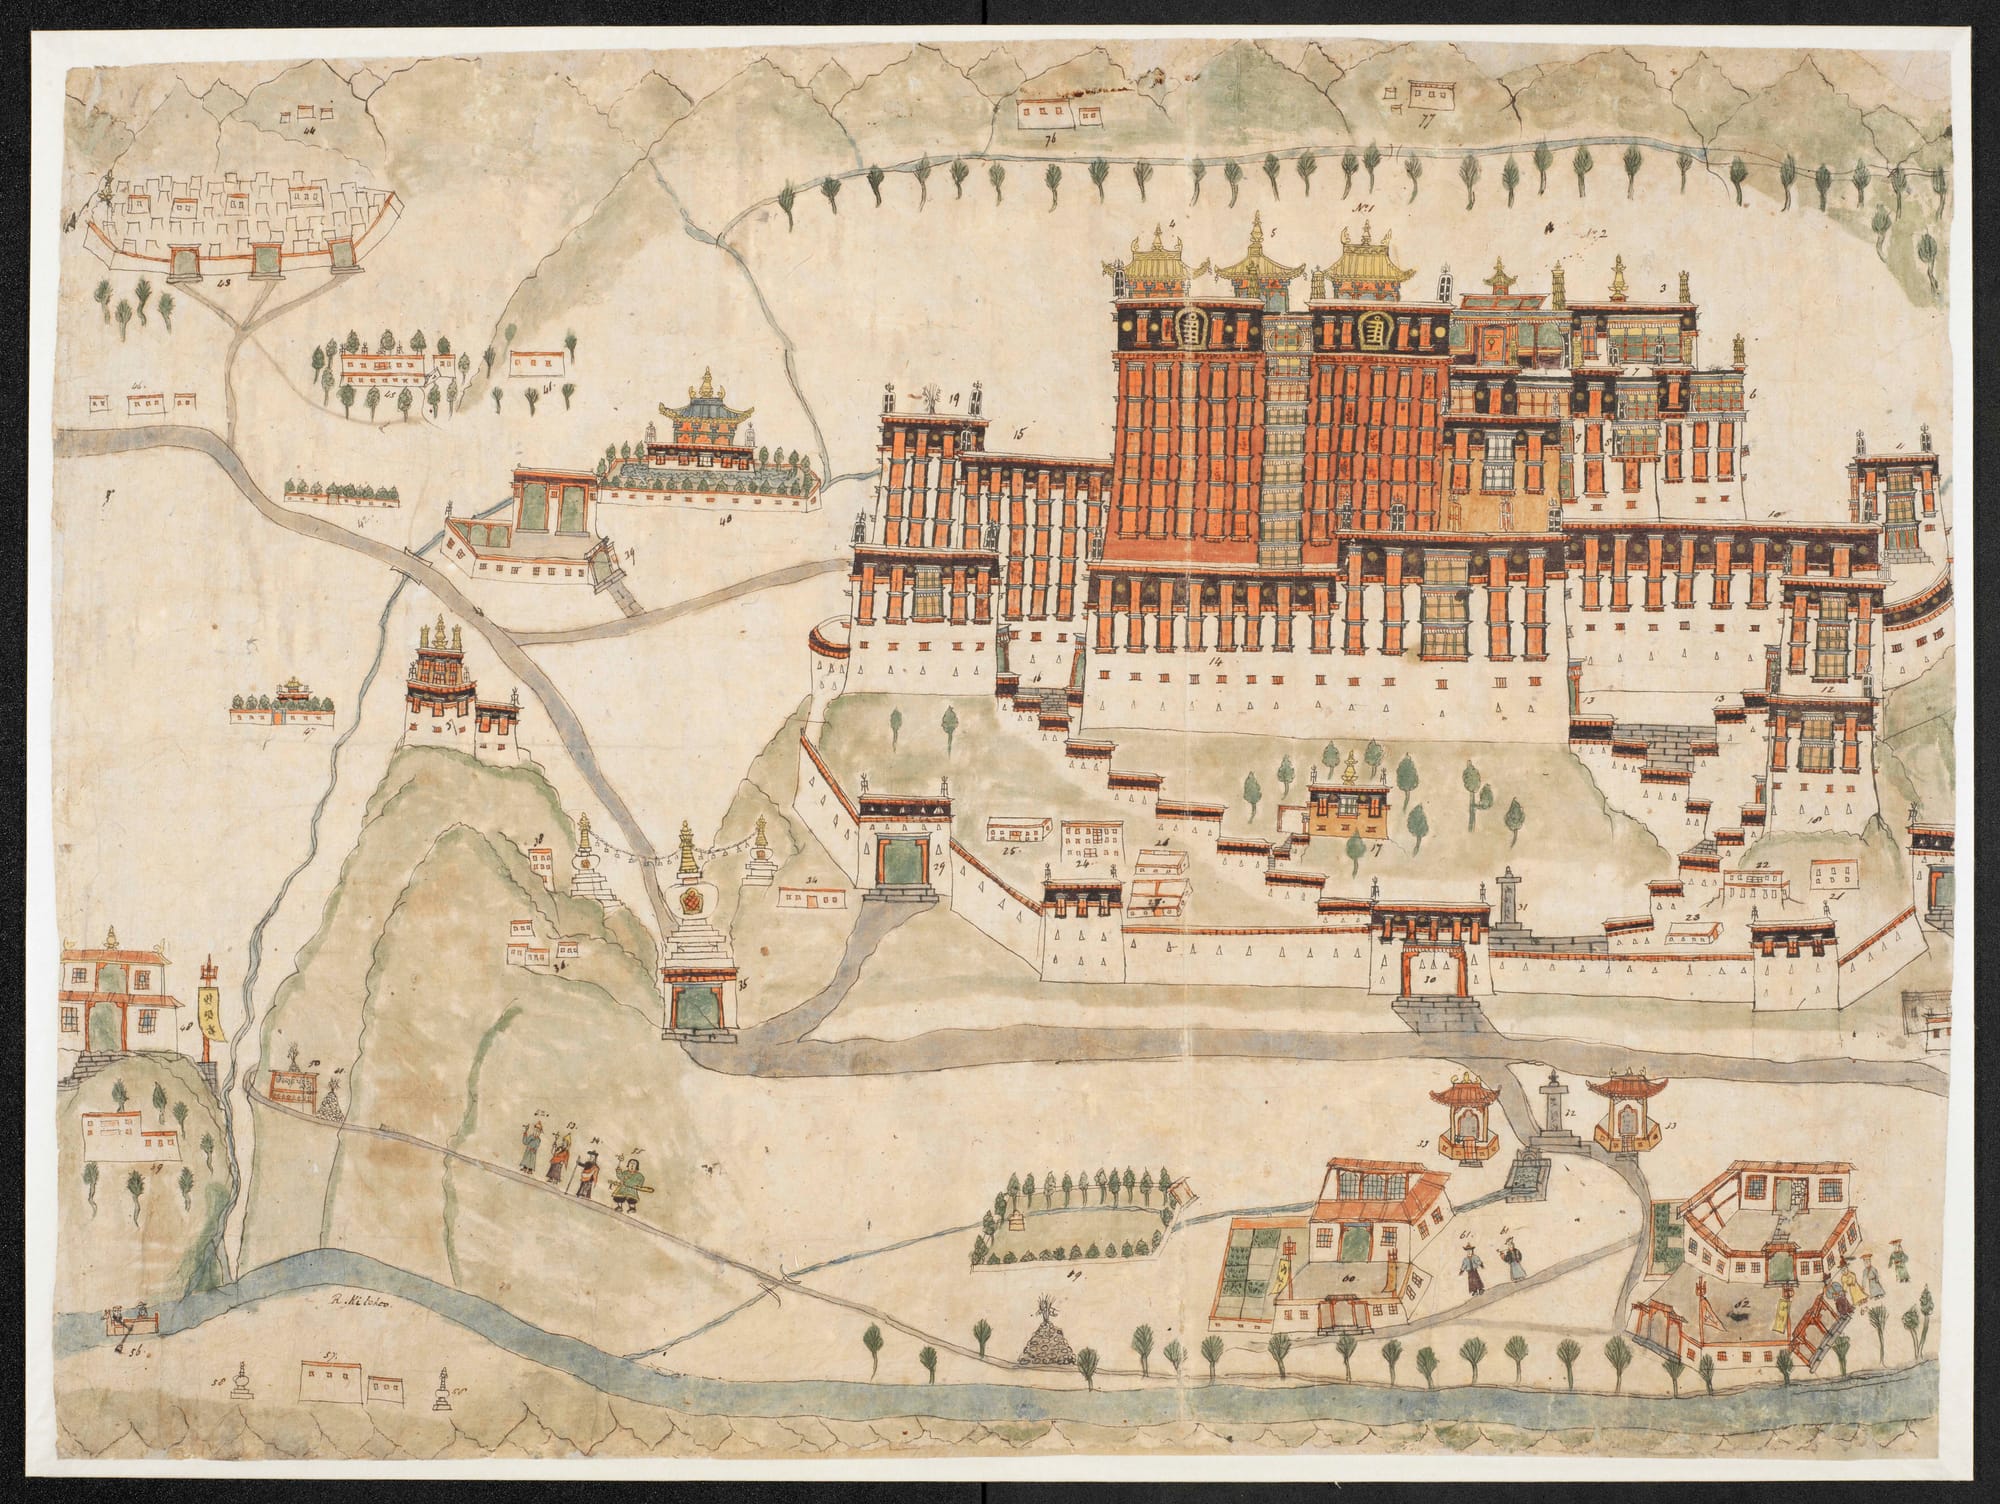 44
76
77
No. 1
No. 2
4
5
3
43
7
6
45
41
46.
9
8
19
15
11
42
40
10
39
14
16
12
13
13
47
18
17
38
25.
24
26
27
22
21
23
29
34
31
36.
35
30
48
50
51
52.
53.
54
55
32
33
33
49
59
61.
61
60
62
R. Kitchoo.
56
57.
58
58